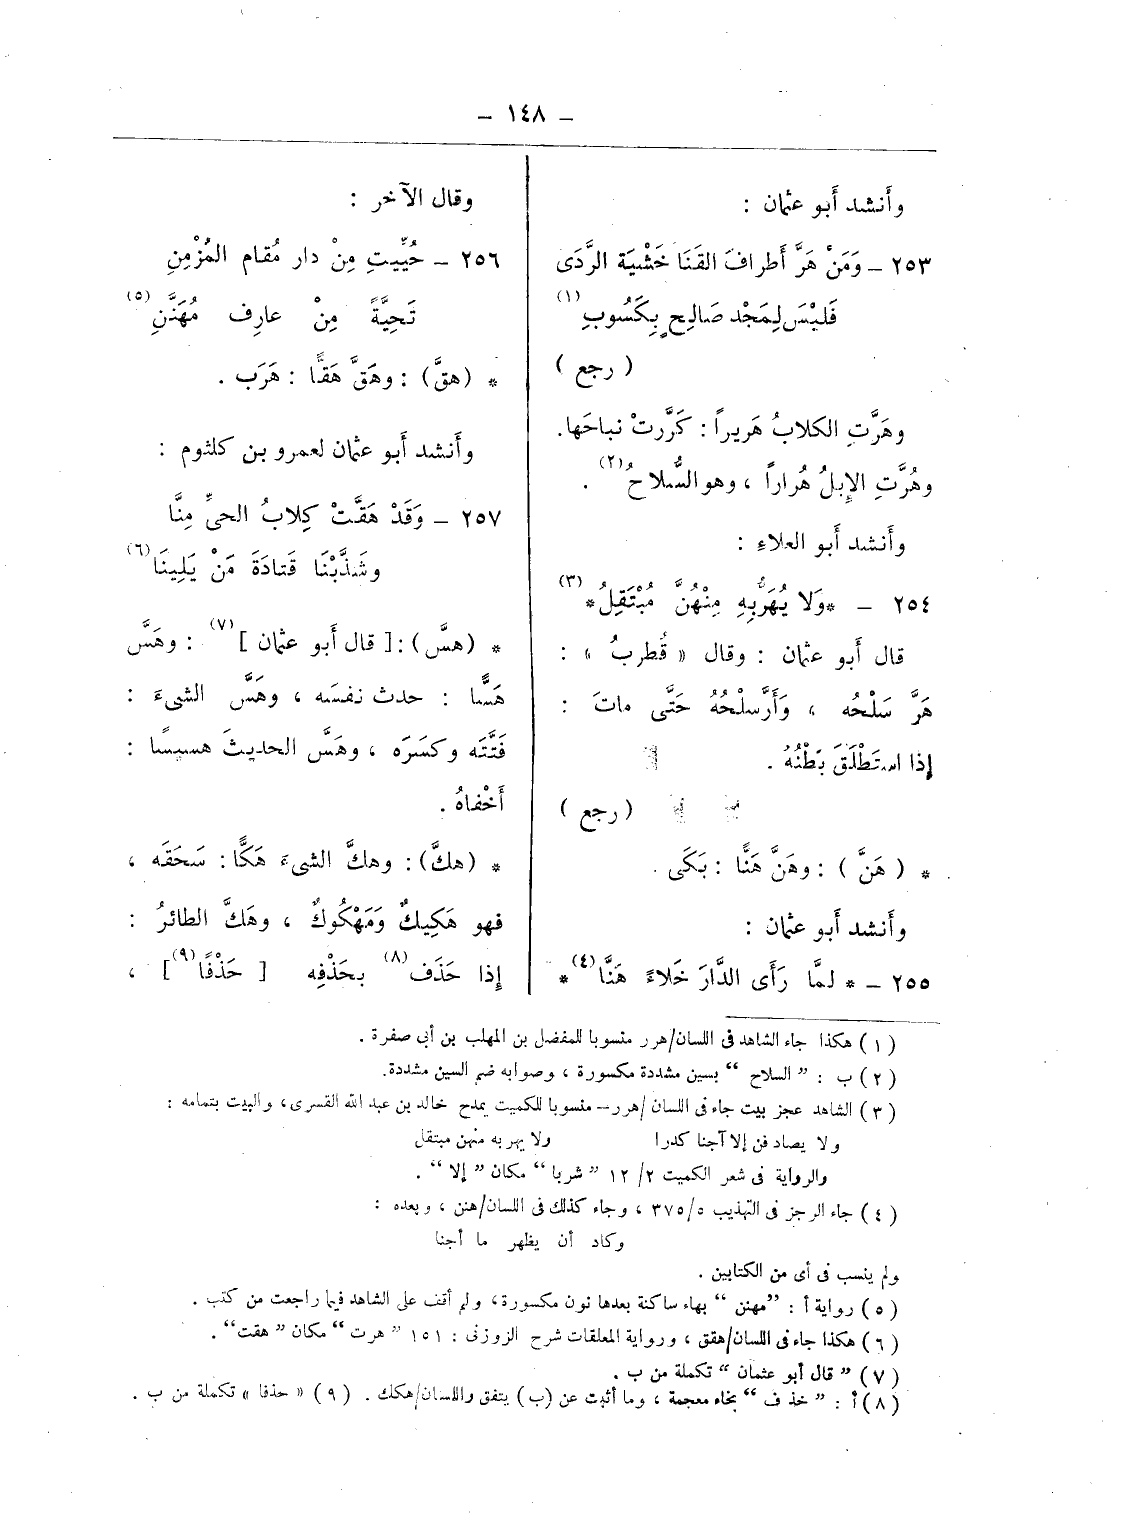 – ١٤٨ –
وأَنشد أَبو عثمان :
٢٥٣ – وَمَنْ هَرَّ أَطرافَ القَنَا خَشْيَة الرَّدَى
فَلَيْسَ لِمَجْد صَالِحٍ بِكَسُوبِ (١)
( رجع )
وهَرَّتِ الكلابُ هَريراً : كَرَّرتْ نباحَها.
وهُرَّتِ الإِبلُ هُراراً ، وهو السُّلاحُ (٢) .
وأَنشد أَبو العلاءِ :
٢٥٤ – *وَلا يُهَرُّبِهِ مِنْهُنَّ مُبْتَقِلُ* (٣)
قال أَبو عثمان : وقال « قُطربُ » :
هَرَّ سَلْحُه ، وَأَرَّسلْحُهُ حَتَّى ماتَ :
إِذا استَطْلَقَ بَطْنُهُ .
( رجع )
* ( هَنَّ ) : وهَنَّ هَنًّا : بَكَى .
وأَنشد أَبو عثمان :
٢٥٥ – * لمَّا رَأَى الدَّارَ خَلاءً هَنَّا (٤) *
وقال الآخر :
٢٥٦ – حُيِّيتِ مِنْ دار مُقام المُزْمِنِ
تَحِيَّةً مِنْ عارِف مُهَنَّنِ (٥)
* (هقَّ) : وهَقَّ هَقًّا : هَرَب .
وأَنشد أَبو عثمان لعمرو بن كلثوم :
٢٥٧ – وَقَدْ هَقَّتْ كِلابُ الحىِّ مِنَّا
وشَذَّبْنَا قَتادَةَ مَنْ يَلِينَا (٦)
* (هسَّ) : [ قال أَبو عثمان ] (٧) : وهَسَّ
هَسًّا : حدث نفسَه ، وهَسَّ الشىءَ :
فَتَّتَه وكسَرَه ، وهَسَّ الحديثَ هسيسًا :
أَخْفاهُ .
* (هكَّ) : وهكَّ الشىءَ هَكًّا : سَحَقَه ،
فهو هَكِيكٌ وَمَهْكُوكٌ ، وهَكَّ الطائرُ :
إِذا حَذَف (٨) بحَذْفِه [ حَذْفًا (٩) ] ،
(١) هكذا جاء الشاهد فى اللسان/هرر منسوبا للمفضل بن المهلب بن أبى صفرة .
(٢) ب : " السلاح " بسين مشددة مكسورة ، وصوابه ضم السين مشددة.
(٣) الشاهد عجز بيت جاء فى اللسان /هرر– منسوبا للكميت يمدح خالد بن عبد الله القسرى، والبيت بتمامه :
ولا يصادفن إلا آجنا كدرا ولا يهر به منهن مبتقل
والرواية فى شعر الكميت ٢/ ١٢ " شربا " مكان " إلا " .
(٤) جاء الرجز فى التهذيب ٥/ ٣٧٥ ، وجاء كذلك فى اللسان/هنن ، وبعده :
وكاد أن يظهر ما أجنا
ولم ينسب فى أى من الكتابين .
(٥) رواية أ : "مهنن " بهاء ساكنة بعدها نون مكسورة، ولم أقف على الشاهد فيما راجعت من كتب .
(٦) هكذا جاء فى اللسان/هقق ، ورواية المعلقات شرح الزوزنى : ١٥١ " هرت " مكان " هقت " .
(٧) " قال أبو عثمان " تكملة من ب .
(٨) أ : " خذف " بخاء معجمة ، وما أثبت عن (ب) يتفق واللسان/هكك . (٩) « حذفا » تكملة من ب .